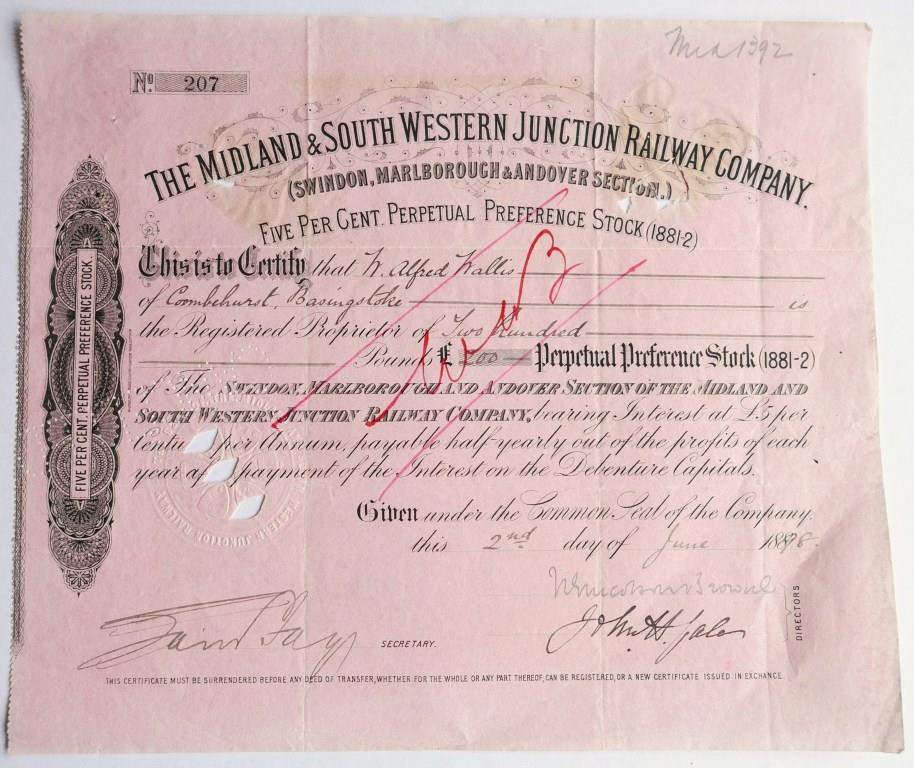 1392
No. 207
THE MIDLAND & SOUTH WESTERN JUNCTION RAILWAY COMPANY.
(SWINDON, MARLBOROUGH & ANDOVER SECTION.)
FIVE PER CENT. PERPETUAL PREFERENCE STOCK (1881-2)
This is to Certify that W. Alfred Wallis
of Coombehurst, Basingstoke is
the Registered Proprietor of Two hundred
Pounds £ 200 Perpetual Preference Stock (1881-2)
of The SWINDON, MARLBOROUGH AND ANDOVER SECTION OF THE MIDLAND AND
SOUTH WESTERN JUNCTION RAILWAY COMPANY, bearing Interest at £5 per
Centu per Annum, payable half-yearly out of the profits of each
year a payment of the Interest on the Debenture Capitals.
Given under the Common Seal of the Company.
this 2nd day of June 1898
FIVE PER CENT. PERPETUAL PREFERENCE STOCK.
DIRECTORS
SECRETARY.
THIS CERTIFICATE MUST BE SURRENDERED BEFORE ANY DEED OF TRANSFER, WHETHER FOR THE WHOLE OR ANY PART THEREOF, CAN BE REGISTERED, OR A NEW CERTIFICATE ISSUED IN EXCHANGE